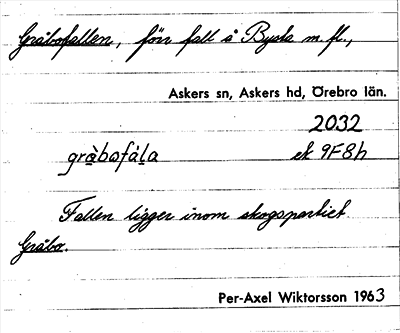 Gräbofallen, förr fall å Bysta m. fl.,
Askers sn, Askers hd, Örebro län.
2032
grạ̀bofáḷa ek 9F8h
Fallen ligger inom skogspartiet
Gräbo.
Per-Axel Wiktorsson 1963